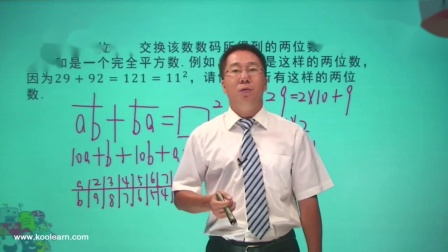 数 交换该数数码所得到的两位数
和是一个完全平方数. 例如 是这样的两位数,
因为29 + 92 = 121 = 11², 请 所有这样的两位
数.
ab + ba = □² 29=2×10+9
10a+b+10b+a
a 2 3 4 5 6 7
b 9 8 7 6 5 4
www.koolearn.com